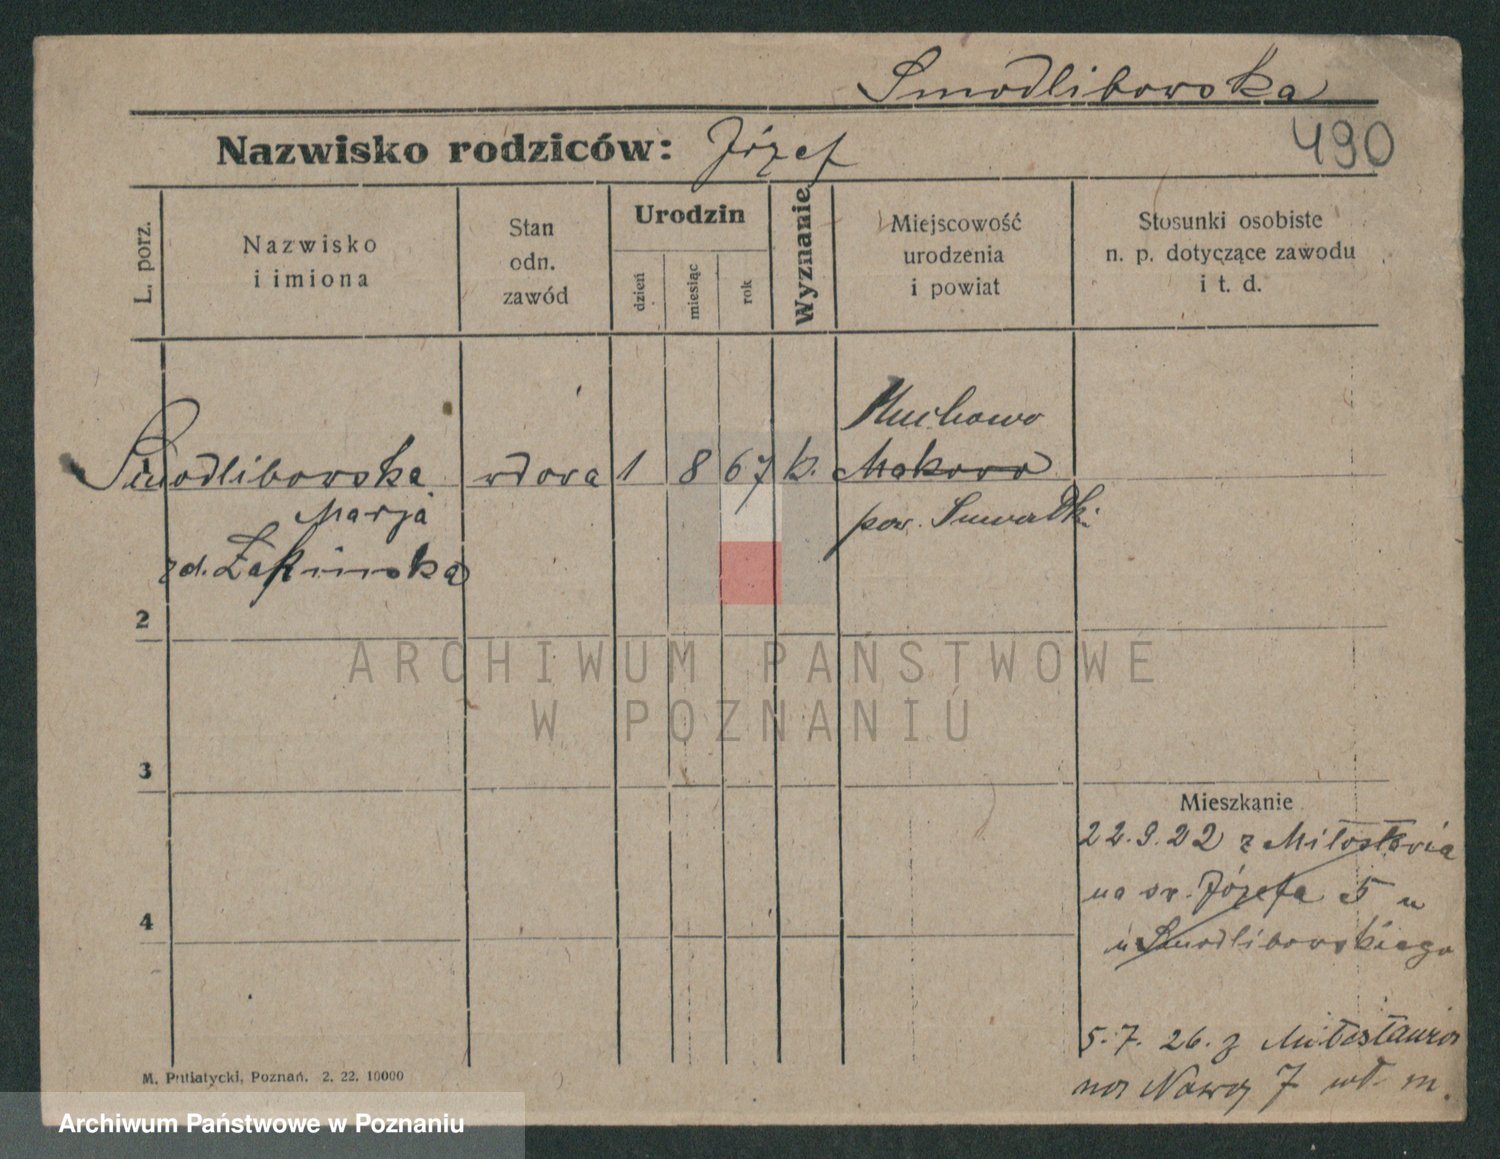 Smodlibowska
Nazwisko rodziców: Józef
490
L. porz.
Nazwisko
i imiona
Stan
odn.
zawód
Urodzin
dzień
miesiąc
rok
Wyznanie
Miejscowość
urodzenia
i powiat
Stosunki osobiste
n. p. dotyczące zawodu
i t. d.
Smodlibowska wdowa 1 8 67 k. Makowo
Marja
zd.
pow. Suwałki
2
3
4
Mieszkanie
22.9.22 z Miłosławia
na św. Józefa 5
u Smodlibowskiego
5.7. 26. z Miłosławia
na Nową 7 wł. m.
M. Putiatycki, Poznań. 2. 22. 10000
ARCHIWUM PAŃSTWOWE
W POZNANIU
Archiwum Państwowe w Poznaniu